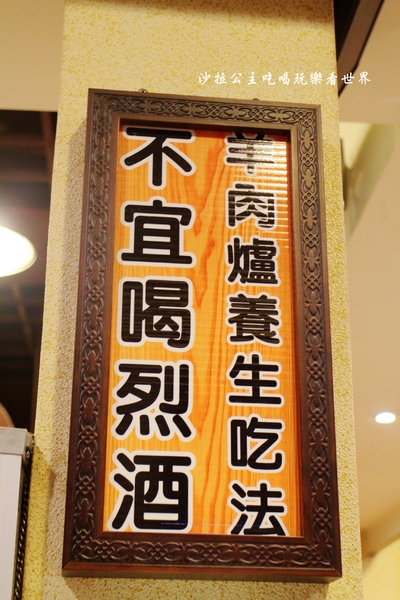 沙拉公主吃喝玩樂看世界
羊肉爐養生吃法
不宜喝烈酒